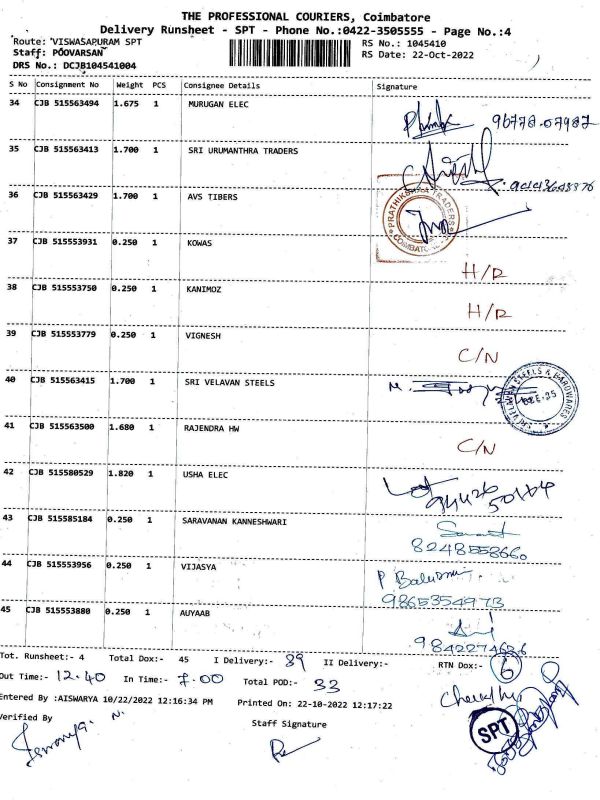 THE PROFESSIONAL COURIERS, Coimbatore
Delivery Runsheet - SPT - Phone No.:0422-3505555 - Page No.:4
Route: VISWASAPURAM SPT
RS No.: 1045410
Staff: POOVARSAN
RS Date: 22-Oct-2022
DRS No.: DCJB104541004
S No Consignment No Weight PCS Consignee Details Signature
34 CJB 515563494 1.675 1 MURUGAN ELEC
35 CJB 515563413 1.700 1 SRI URUMANTHRA TRADERS
36 CJB 515563429 1.700 1 AVS TIBERS
PRATHIKSHAA TRADERS COIMBATORE
37 CJB 515553931 0.250 1 KOWAS H/R
38 CJB 515553750 0.250 1 KANIMOZ H/R
39 CJB 515553779 0.250 1 VIGNESH C/N
40 CJB 515563415 1.700 1 SRI VELAVAN STEELS
SRI VELAVAN STEELS & HARDWARES
41 CJB 515563500 1.680 1 RAJENDRA HW C/N
42 CJB 515580529 1.820 1 USHA ELEC
43 CJB 515585184 0.250 1 SARAVANAN KANNESHWARI
8248558660
44 CJB 515553956 0.250 1 VIJASYA
9865354973
45 CJB 515553880 0.250 1 AUYAAB
Tot. Runsheet:- 4 Total Dox:- 45 I Delivery:- 39 II Delivery:- RTN Dox:- 6
Out Time:- 12.40 In Time:- 7.00 Total POD:- 33
Entered By :AISWARYA 10/22/2022 12:16:34 PM Printed On: 22-10-2022 12:17:22
Verified By Staff Signature
SPT